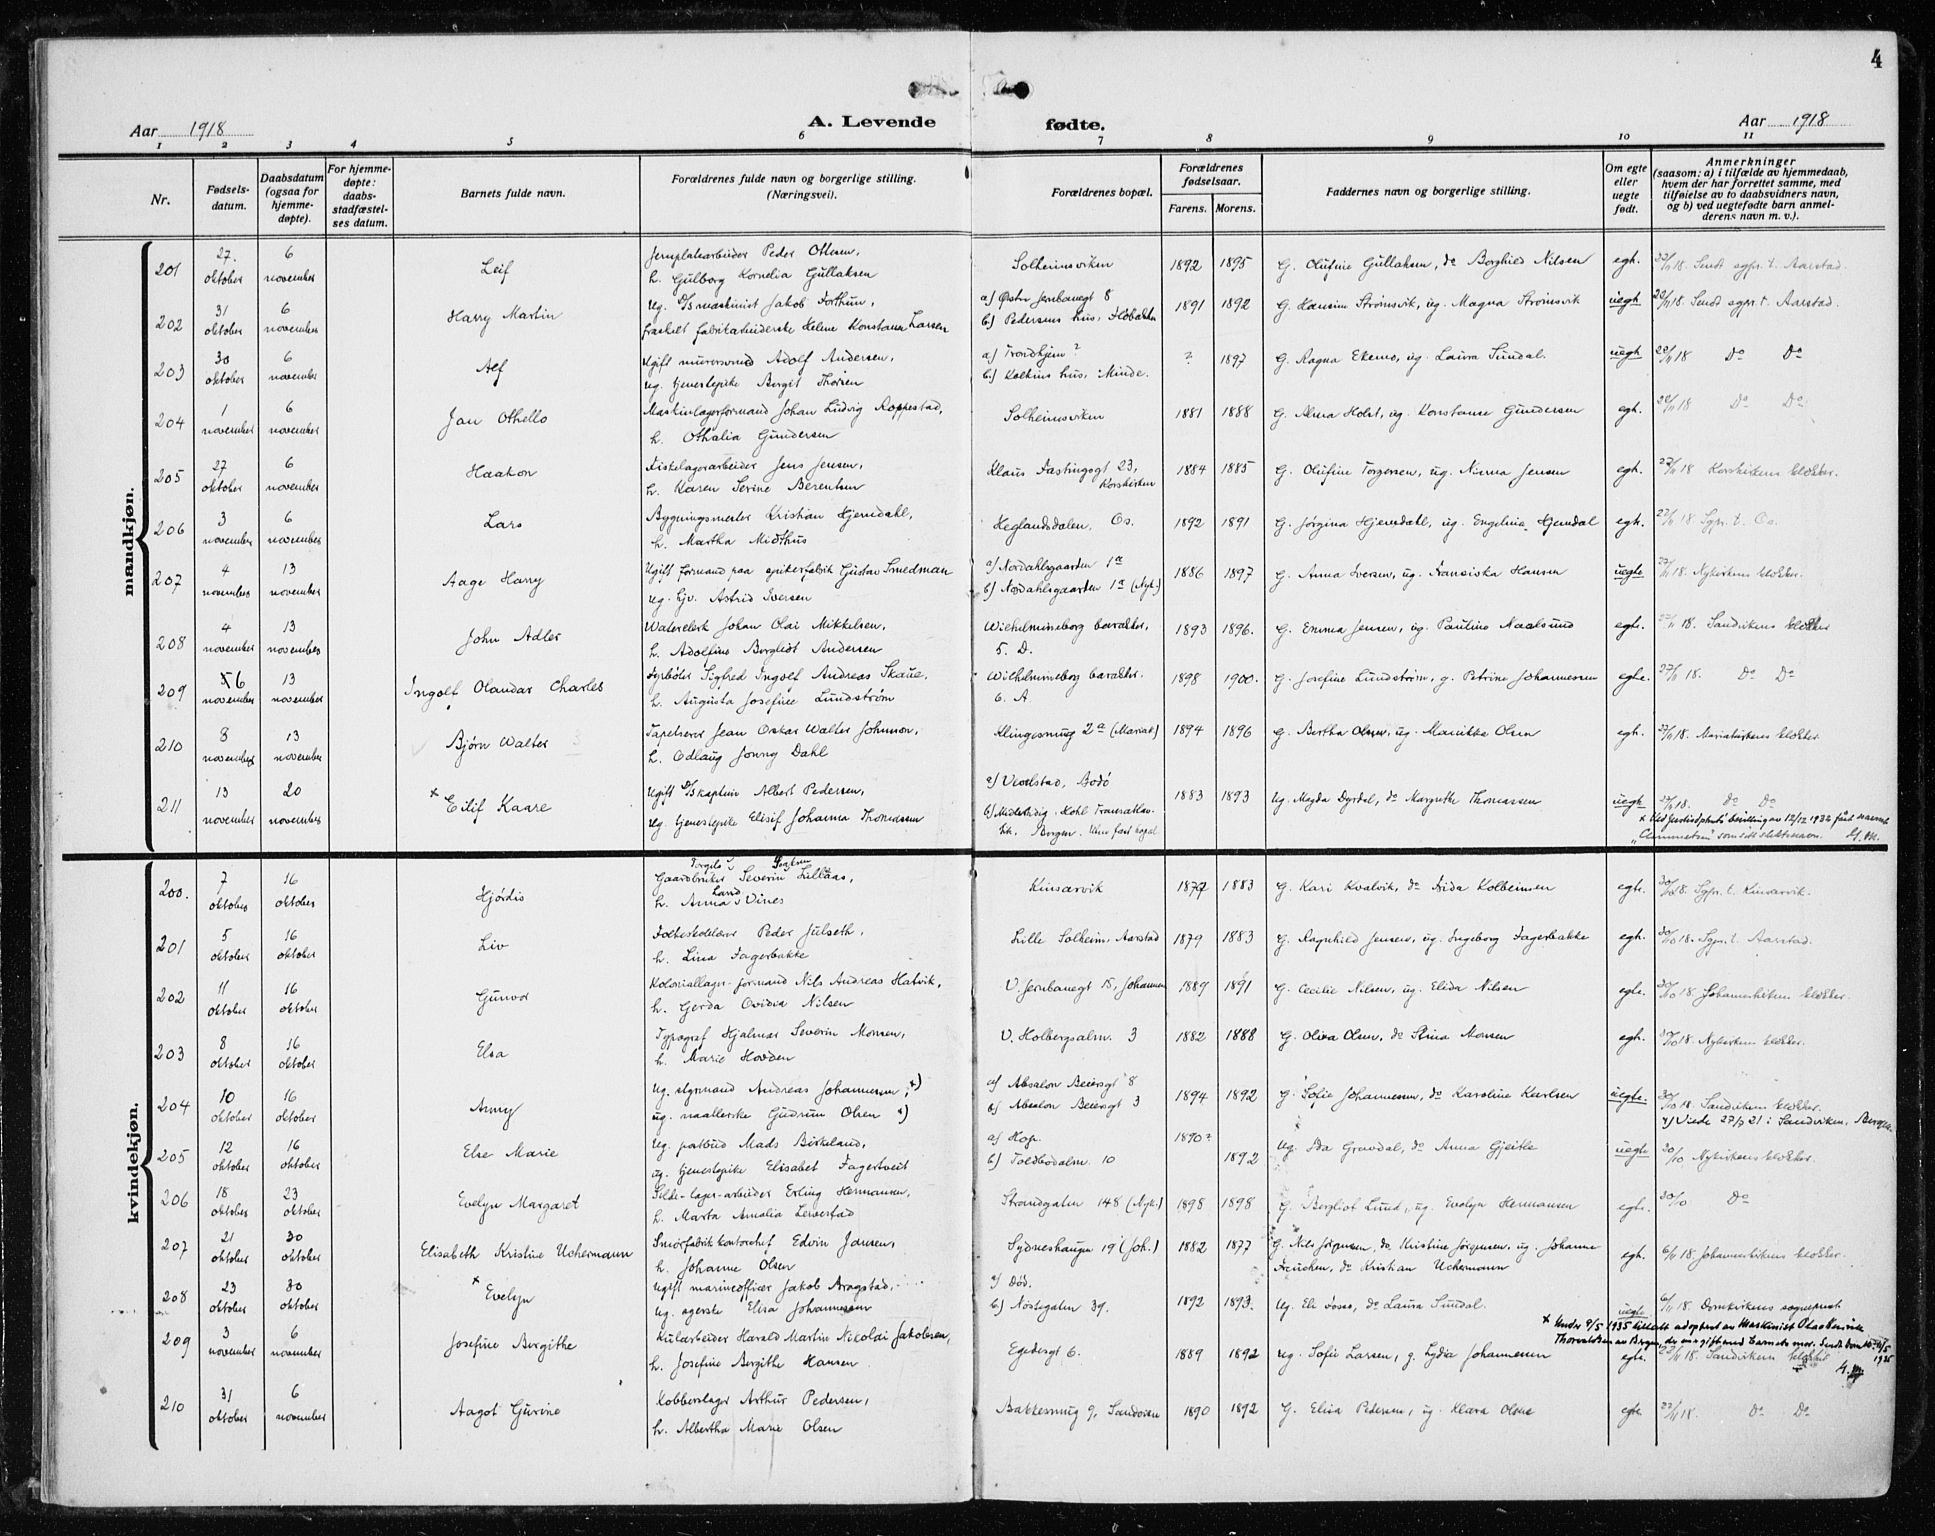 4
Aar 1918
A. Levende fødte.
Aar 1918
1 2 3 4 5 6 7 8 9 10 11
Nr.
Fødselsdatum.
Daabsdatum (ogsaa for hjemmedøpte).
For hjemmedøpte: daabsstadfæstelses datum.
Barnets fulde navn.
Forældrenes fulde navn og borgerlige stilling. (Næringsvei).
Forældrenes bopæl.
Forældrenes fødselsaar.
Farens. Morens.
Faddernes navn og borgerlige stilling.
Om egte eller uegte født.
Anmerkninger (saasom: a) i tilfælde av hjemmedaab, hvem der har forrettet samme, med tilføielse av to daabsvidners navn, og b) ved uegtefødte barn anmelderens navn m. v.).
mandkjøn.
201 27. oktober 6 november Leif Jernplatearbeider Peder Ottesen, h. Gulborg Kornelia Gullaksen Solheimsviken 1892 1895 G. Olufine Gullaksen, do Borghild Nilsen egh. 22/11 18. Sendt sgpr. t. Aarstad.
202 31 oktober 6 november Harry Martin Ug. D/S maskinist Jakob Forthun, fraskilt fabrikarbeiderske Helene Konstanse Larsen a) Østre Jernbanegt 8 b) Pedersens hus, 1891 1892 G. Hansine Strømsvik, ug. Magna Strømsvik uegh 22/11 18. Sendt sgpr. t. Aarstad.
203 30 oktober 6 november Alf Ugift murersvend Adolf Andersen, ug. tjenestepike Bergit Thorsen a) Trondhjem? b.) hus, Minde. ? 1897 G. Ragna Ekemo, ug. Laura Sundal. uegh 22/11 18 Do Do
204 1 november 6 november Jan Othello Maskinlagerformand Johan Ludvig Roppestad, h. Othalia Gundersen Solheimsviken 1881 1888 G. Alma Holst, ug. Konstanse Gundersen egh 22/11 18 Do Do
205 27 oktober 6 november Haakon Fiskelagerarbeider Jens Jensen, h. Karen Severine Berentsen Klaus Fastingsgt 23, Korskirken 1884 1885 G. Olufine Torgersen, ug. Ninna Jensen egh. 22/11 18 Korskirkens klokker.
206 3 november 6 november Lars Bygningsmester Kristian Hjemdahl, h. Martha Midthus Heglandsdalen, Os. 1892 1891 G. Jørgina Hjemdahl, ug. Engelina Hjemdal egh. 22/11 18. Sgpr. t. Os.
207 4 november 13 november Aage Harry Ugift formand paa spikerfabrik Gustav Smedman ug. hjv. Astrid Iversen a) Nordahlsgaarden 1a b) Nordahlsgaarden 1a (Nyk.) 1886 1897 G. Anna Iversen, ug. Fransiska Hansen uegte 27/11 18. Nykirkens klokker.
208 4 november 13 november John Adler Waterclerk Johan Olai Mikkelsen, h. Adolfine Bergliot Andersen Wilhelmineborg barakker, 5. D. 1893 1896. G. Emma Jensen, ug. Pauline Naalsund egte. 27/11 18. Sandvikens klokker
209 6 november 13 november Ingolf Olandar Charles Fyrbøter Sigfred Ingolf Andreas Skaue, h. Augusta Josefine Lundstrøm Wilhelmineborg barakker. 6. A 1898 1900. G. Josefine Lundstrøm, g. Petrine Johannessen egte. 27/11 18. Do Do
210 8 november 13 november Bjørn Walter Tapetserer Jean Oskar Walter Johnson, h. Odlaug Jonny Dahl Klingesmug 2a (Mariak) 1894 1896 G. Bertha Olsen, ug. Marikke Olsen egh. 27/11 18. Mariakirkens klokker
211 13 november 20 november x Eilif Kaare Ugift D/S kaptein Albert Pedersen, ug. tjenestepike Elisif Johanna Thomassen a) Bodø b) Midlertidig. Bergen. Uten fast bopæl. 1883 1893 Ug. Magda Dyrdal, do Margrethe Thomassen uegh 27/11 18. Do Do
x Ved Justisdptets bevilling av 12/12 1932 faat navnet "Clemmetsen" som sit slektsnavn.
kvindekjøn.
200. 7 oktober 16 oktober Hjørdis Gaardbruker Torgils Severin Lillaas, h. Anna Vines Kinsarvik 1877 1883 G. Kari Kvalvik, do Aida Kolbeinsen egh. 30/10 18. Sgpr. t. Kinsarvik.
201 5 oktober 16 oktober Liv Peder Julseth, h. Lina Fagerbakke Lille Solheim, Aarstad 1879 1883 G. Ragnhild Jensen, ug. Ingeborg Fagerbakke egh. 30/10 18. Sgpr. t. Aarstad.
202 11 oktober 16 oktober Gunvor Koloniallager-formand Nils Andreas Hatvik, h. Gerda Ovidia Nilsen V. Jernbanegt 15, Johannes 1889 1891 G. Cecilie Nilsen, ug. Elida Nilsen egte. 30/10 18. Johanneskirkens klokker.
203 8 oktober 16 oktober Elsa Typograf Hjalmar Severin Monsen, h. Marie Hovden V. Holbergsalm. 3 1882 1888 G. Oliva Olsen, do Stina Monsen egh. 30/10 18. Nykirkens klokker.
204 10 oktober 16 oktober Anny Ug. styrmand Andreas Johannessen, x) ug. Gudrun Olsen x) a) Absalon Beiersgt 8 b) Absalon Beiersgt 3 1894 1892 G. Sofie Johannessen, do Karoline Karlsen uegte. 30/10 18. Sandvikens klokker. x) Viede 27/7 21 i Sandviken, Bergen.
205 12 oktober 16 oktober Else Marie Ug. postbud Mads Birkeland, ug. tjenestepike Elisabet Fagertveit a) Hop. b) Toldbodalm. 10 1890? 1892 Ug. Ida Grøvdal, do Anna Gjeitle uegte 30/10 Nykirkens klokker.
206 18 oktober 23 oktober Evelyn Margaret Silde-lager-arbeider Erling Hermansen, h. Marta Amalia Lervestad Strandgaten 148 (Nyk.) 1898 1898 G. Bergliot Lund, ug. Evelyn Hermansen egte. 30/10 Do
207 21 oktober 30 oktober Elisabeth Kristine Uchermann Smørfabrik kontorchef Edvin Jansen, h. Johanne Olsen Sydneshaugen 19 (Joh.) 1882 1877 G. Nils Jørgensen, do Kristine Jørgensen, ug. Johanne Fruchen, do Kristian Uchermann egh. 6/11 18. Johanneskirkens klokker.
208 23 oktober 30 oktober x Evelyn Ugift marineofficer Jakob Aragstad, ug. syerske Elisa Johannessen a) Død. b) Nøstegaten 39. 1892 1893. Ug. Eli Fosse, do Laura Sundal. uegte 6/11 18. Domkirkens sogneprest
x Under 9/5 1935 tillatt adoptert av Maskinist Olaf Henrik Thorvaldsen av Bergen, der er gift med barnets mor.
209 3 november 6 november Josefine Bergithe Kularbeider Harald Martin Nikolai Jakobsen, h. Josefine Bergithe Hansen Egedesgt 6. 1889 1892 Ug. Sofie Larsen, g. Lydia Johannessen egte. 22/11 18. Sandvikens klokker
210 31 oktober 6 november Aagot Gurine Kobberslager Arthur Pedersen, h. Albertha Marie Olsen Bakkesmug 9, Sandviken 1890 1892 G. Elisa Pedersen, ug. Klara Olsen egte. 22/11 18. Do Do